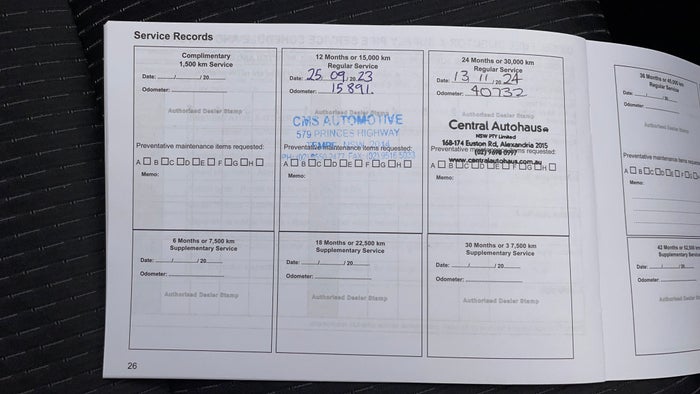 Service Records
Complimentary
1,500 km Service
Date: / / 20
Odometer:
Authorised Dealer Stamp
Preventative maintenance items requested:
A B C D E F G H
Memo:
12 Months or 15,000 km
Regular Service
Date: 25 / 09 / 20 23
Odometer: 15891.
Authorised Dealer Stamp
CMS AUTOMOTIVE
579 PRINCES HIGHWAY
TEMPE NSW 2044
Preventative maintenance items requested:
A B C D E F G H
Memo:
24 Months or 30,000 km
Regular Service
Date: 13 / 11 / 20 24
Odometer: 40732
Authorised Dealer Stamp
Central Autohaus
NSW PTY Limited
168-174 Euston Rd, Alexandria 2015
Preventative maintenance items requested:
(02) 9698 0997
www.centralautohaus.com.au
A B C D E F G H
Memo:
6 Months or 7,500 km
Supplementary Service
Date: / / 20
Odometer:
Authorised Dealer Stamp
18 Months or 22,500 km
Supplementary Service
Date: / / 20
Odometer:
Authorised Dealer Stamp
30 Months or 3 7,500 km
Supplementary Service
Date: / / 20
Odometer:
Authorised Dealer Stamp
26
36 Months or 45,000 km
Regular Service
Date: / /
Odometer:
Authorised Dealer
Preventative maintenance items
A B C D E F G
Memo:
42 Months or 52,500 km
Supplementary Service
Date: / / 20
Odometer:
Authorised Dealer